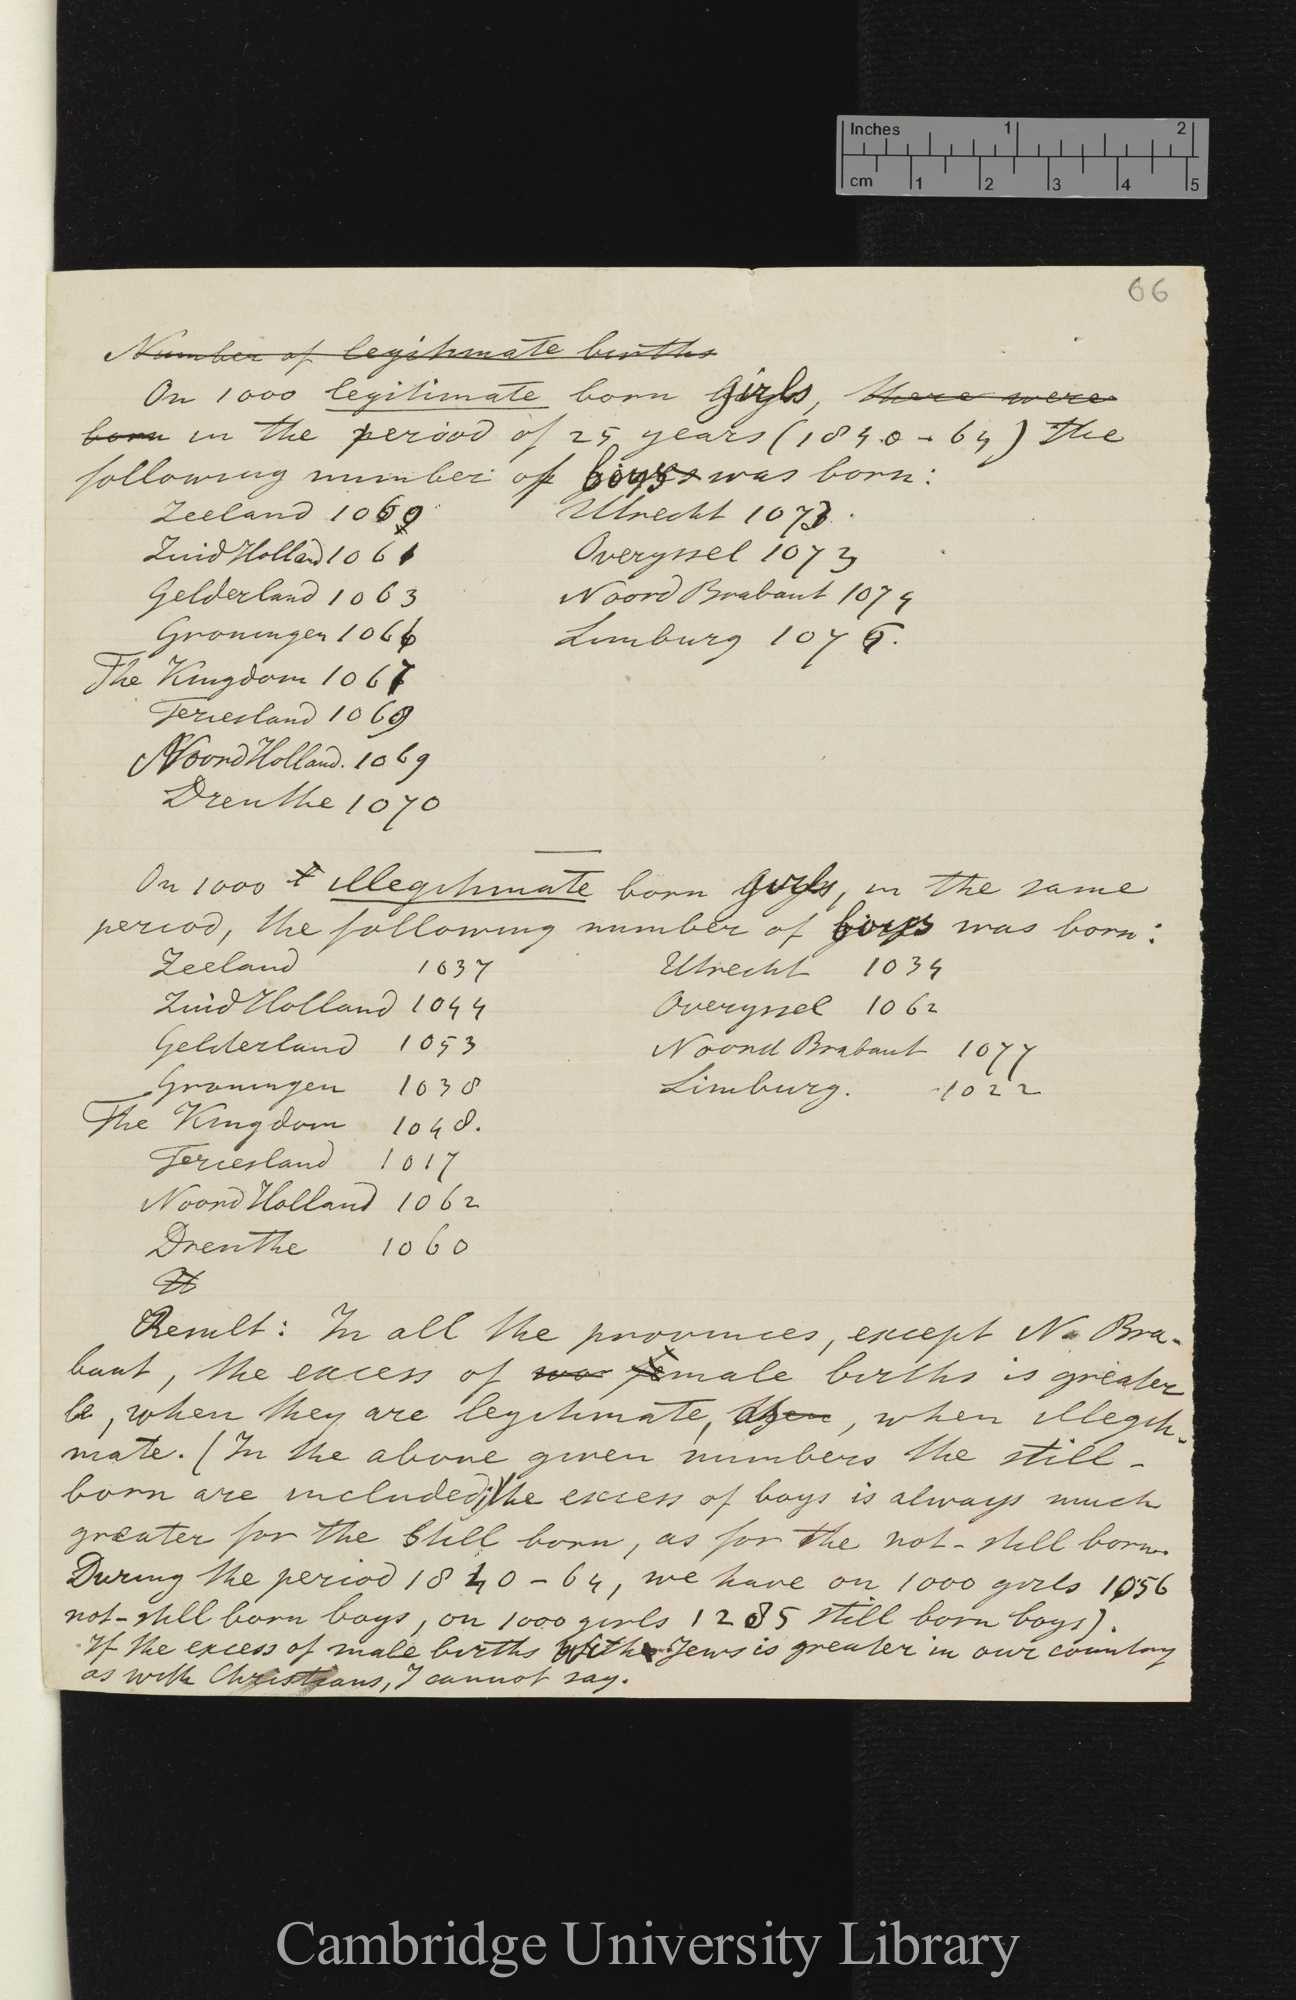 Inches 1 2
cm 1 2 3 4 5
66
Number of legitimate births
On 1000 legitimate born girls, there were
born in the period of 25 years (1840-64) the
following number of boys was born:
Zeeland 1060 Utrecht 1073
Zuid Holland 1061 Overyssel 1073
Gelderland 1063 Noord Brabant 1074
Groningen 1066 Limburg 1076.
The Kingdom 1067
Feriesland 1069
Noord Holland. 1069
Drenthe 1070
On 1000 illegitimate born girls, in the same
period, the following number of boys was born:
Zeeland 1037 Utrecht 1034
Zuid Holland 1044 Overyssel 1062
Gelderland 1053 Noord Brabant 1077
Groningen 1038 Limburg. 1022
The Kingdom 1048.
Feriesland 1017
Noord Holland 1062
Drenthe 1060
U
Result: In all the provinces, except N. Bra-
bant, the excess of male births is greater
, when they are legitimate, then, when illegiti-
mate. (In the above given numbers the still-
born are included; the excess of boys is always much
greater for the still born, as for the not-still born.
During the period 1840-64, we have on 1000 girls 1056
not-still born boys, on 1000 girls 1285 still born boys).
If the excess of male births with Jews is greater in our country
as with Christians, I cannot say.
Cambridge University Library